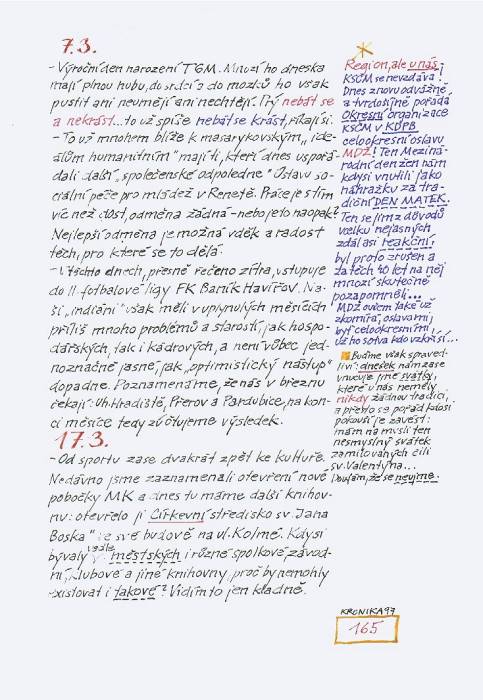 7.3.
- Výroční den narození TGM. Mnozí ho dneska
mají plnou hubu, do srdcí a do mozků ho však
pustit ani neumějí ani nechtějí. Prý nebát se
a nekrást... to už spíše nebát se krást, říkají si.
- To už mnohem blíže k masarykovským „ide-
álům humanitním" mají ti, kteří dnes uspořá-
dali další „společenské odpoledne" Ústavu so-
ciální péče pro mládež v Renetě. Práce je s tím
víc než dost, odměna žádná - nebo je to naopak?
Nejlepší odměna je možná vděk a radost
těch, pro které se to dělá.
- V těchto dnech, přesně řečeno zítra, vstupuje
do II. fotbalové ligy FK Baník Havířov. Na-
ši „indiáni" však měli v uplynulých měsících
příliš mnoho problémů a starostí, jak hospo-
dářských, tak i kádrových, a není vůbec jed-
noznačně jasné, jak „optimistický nástup"
dopadne. Poznamenáme, že nás v březnu
čekají: Uh. Hradiště, Přerov a Pardubice, na kon-
ci měsíce tedy zúčtujeme výsledek.
17.3.
- Od sportu zase dvakrát zpět ke kultuře.
Nedávno jsme zaznamenali otevření nové
pobočky MK a dnes tu máme další knihov-
nu: otevřelo ji Církevní středisko sv. Jana
Boska" ve své budově na ul. Kolmé. Kdysi
bývaly vedle městských i různé spolkové, závod-
ní, klubové a jiné knihovny, proč by nemohly
existovat i takové? Vidím to jen kladně.
Region, ale u nás i
KSČM se nevzdává!
Dnes znovu odvážně
a tvrdošíjně pořádá
Okresní organizace
KSČM v KDPB
celookresní oslavu
MDŽ! Ten Meziná-
rodní den žen nám
kdysi vnutili jako
náhražku za tra-
diční DEN MATEK.
Ten se jim z důvodů
vcelku nejasných
zdál asi reakční,
byl proto zrušen a
za těch 40 let na něj
mnozí skutečně
pozapomněli...
MDŽ ovšem také už
zkomírá, oslava má
být celookresní a
už ho sotva kdo vzkřísí...
Buďme však spraved-
liví: dnešek nám zase
vnucuje jiné svátky,
které u nás neměly
nikdy žádnou tradici,
a přesto se pořád kdosi
pokouší je zavést:
mám na mysli ten
nesmyslný svátek
zamilovaných čili
sv. Valentýna...
Doufám, že se neujme.
KRONIKA 97
165